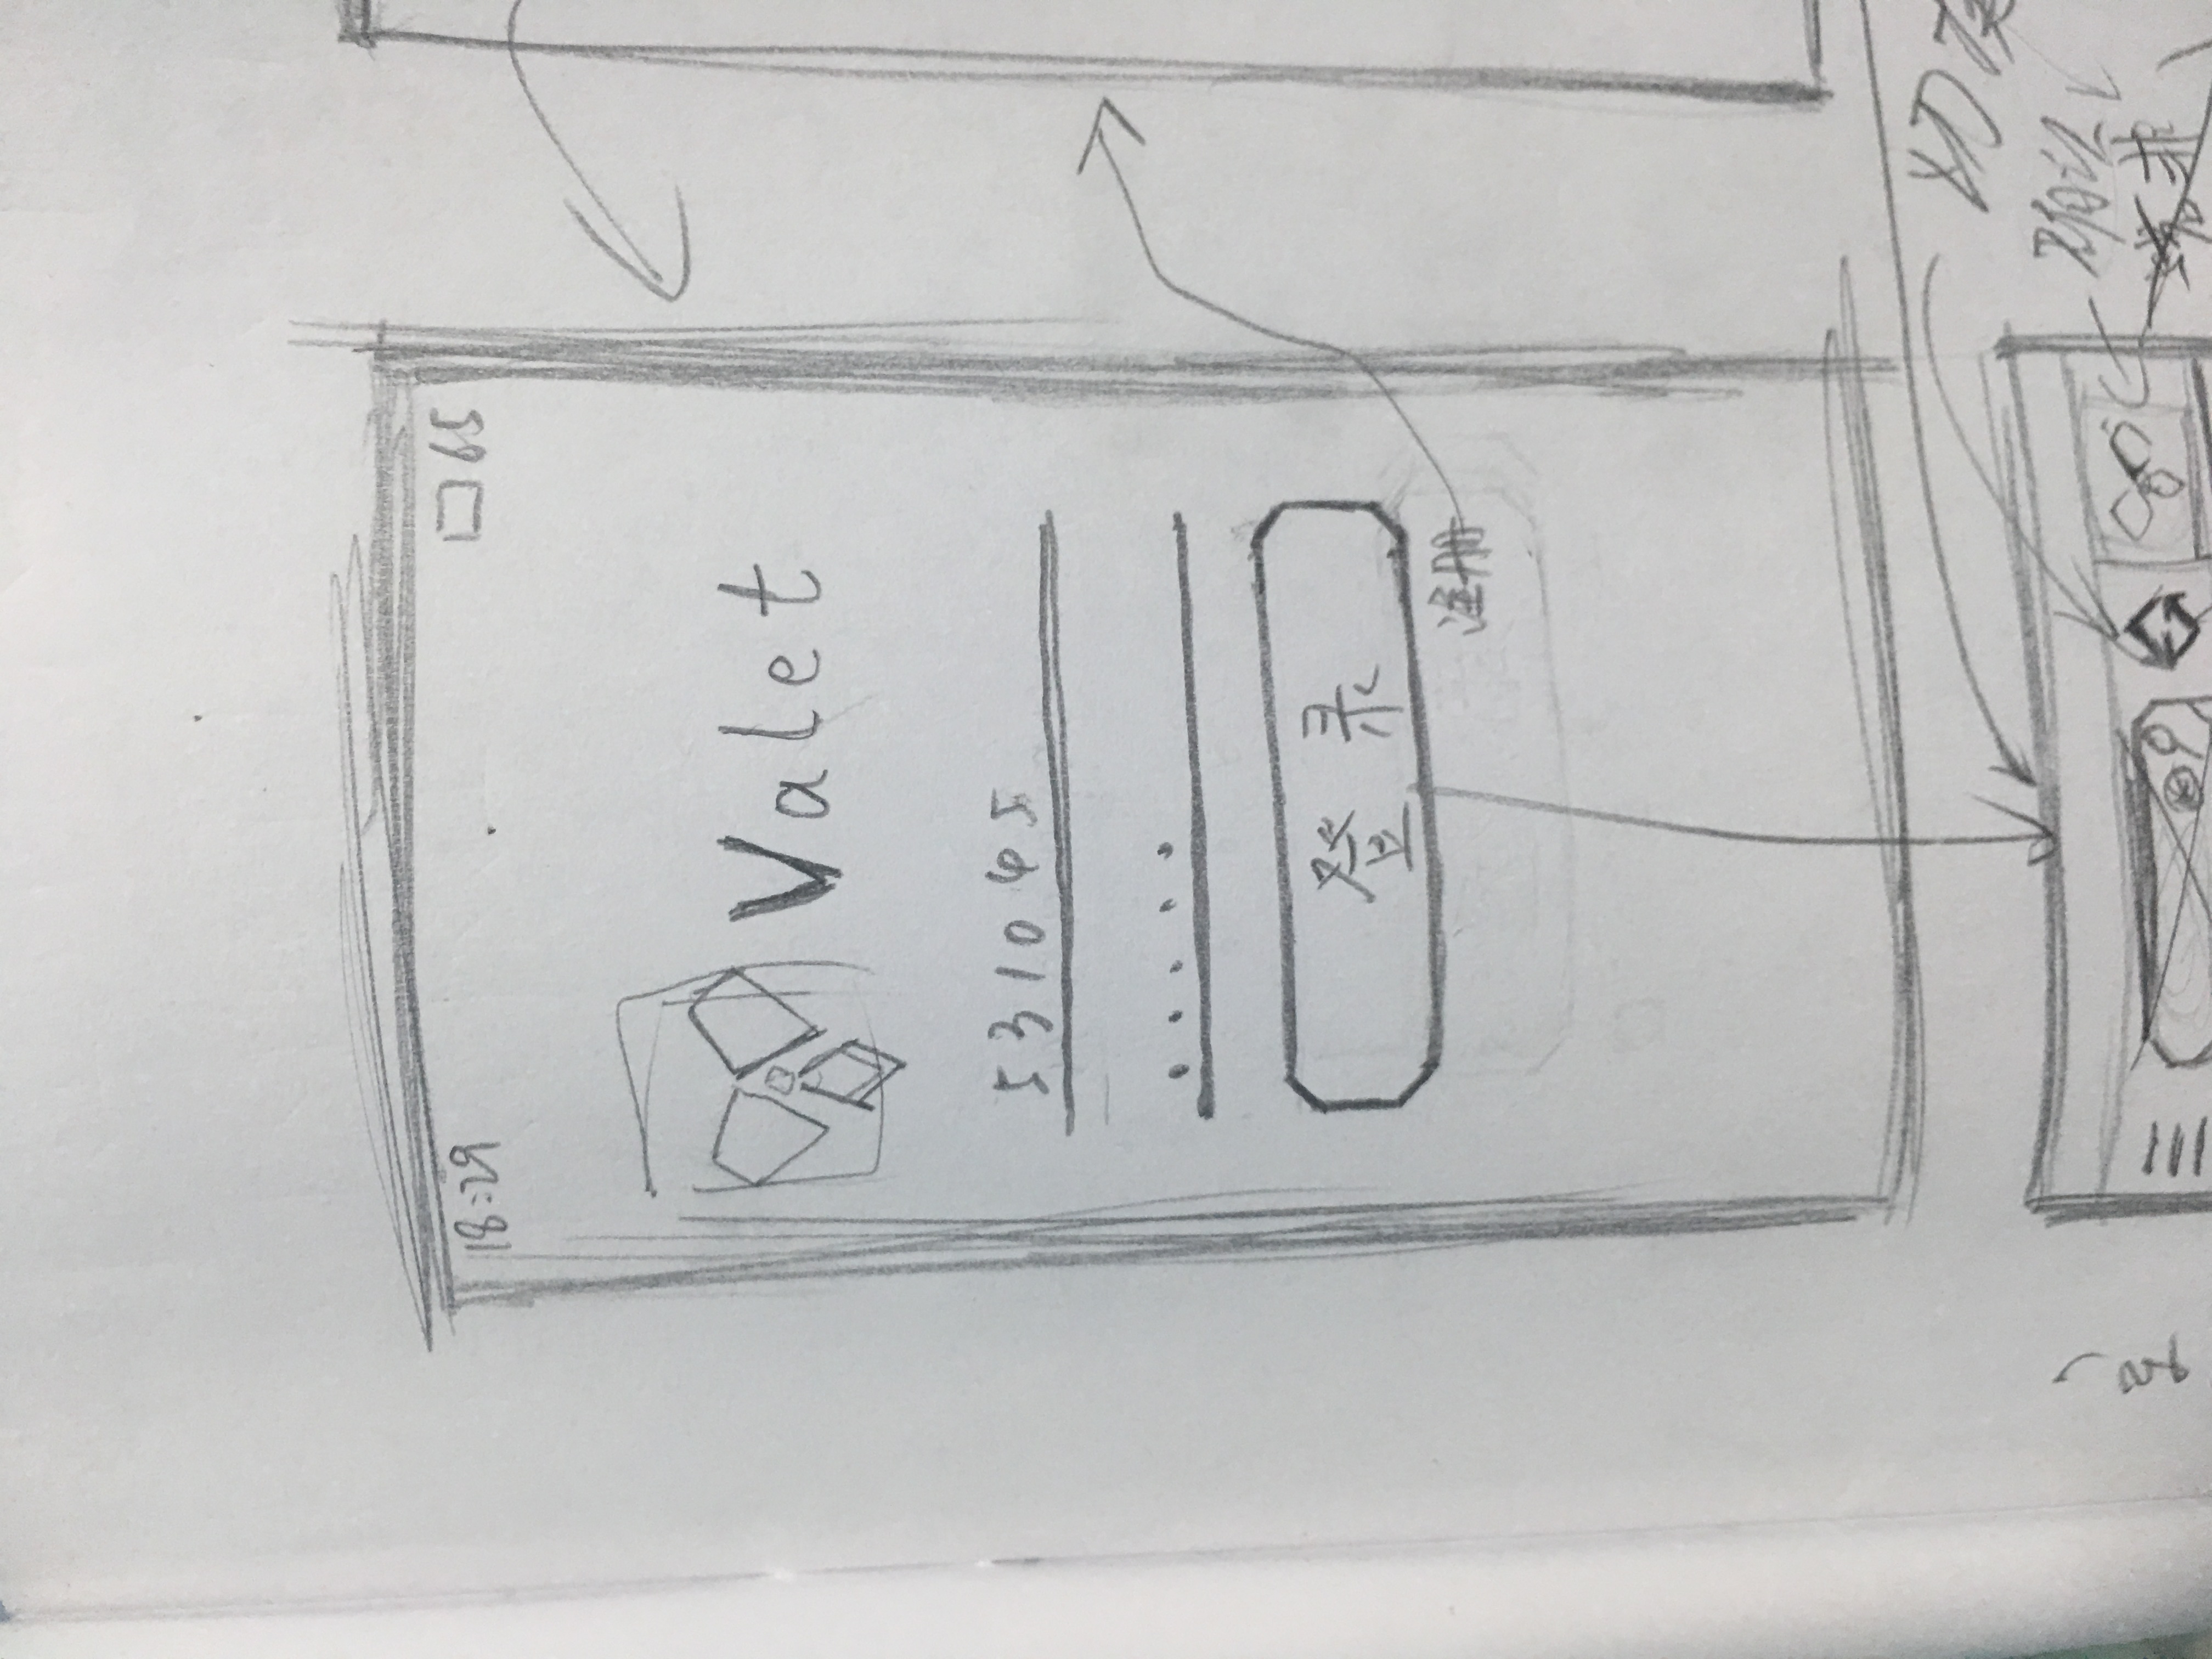 18:29 65
Valet
531045
.....
登录
注册
切换
确认